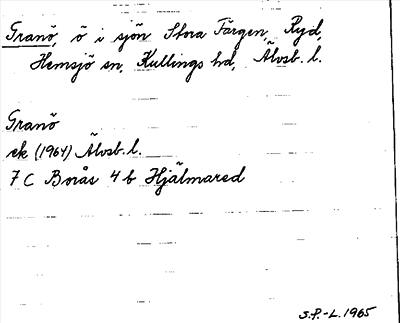 Granö, ö i sjön Stora Färgen, Ryd,
Hemsjö sn, Kullings hd, Älvsb. l.
Granö
ek (1964) Älvsb. l.
7 C Borås 4 b Hjälmared
S.P.-L. 1965